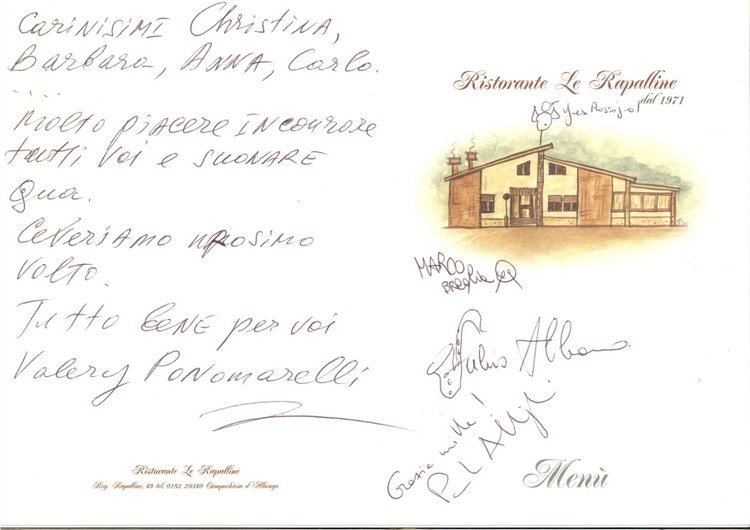 Carinisimi Christina,
Barbara, Anna, Carlo.
....
Molto piacere incourore
tutti voi e suonare
qua.
Ceversiamo nprosimo
volto.
Tutto bene per voi
Valery Ponomarelli
Ristorante Le Rapalline
Reg. Rapalline, 49 tel. 0182 20340 Campochiesa d'Albenga
Ristorante Le Rapalline
dal 1971
Yves Rossignol
MARCO
Fulvio Albano
Grazie mille!
Menù